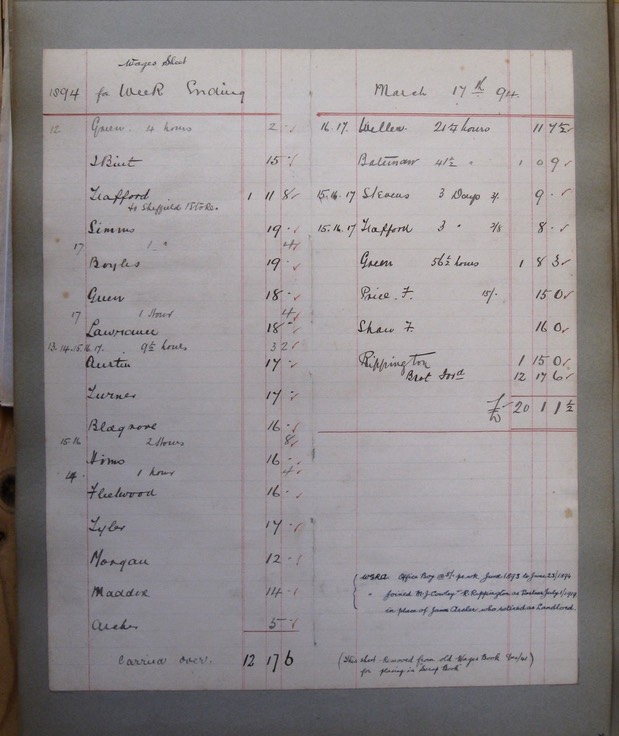 Wages Sheet
1894 for Week Ending
12 Green 4 hours 2 -
J Bint 15 -
Trafford 1 11 8
to Sheffield
Simms 19 -
17 1 " 4
Boyles 19 -
Green 18 -
17 1 hour 4
Lawrance 18 -
13.14.15.16.17. 9½ hours 3 2
Austin 17 -
Turner 17 -
Blagrove 16 -
15.16 2 hours 8
Hims 16 -
14 1 hour 4
Fleetwood 16 -
Tyler 17 -
Morgan 12 -
Maddox 14 -
Archer 5 -
Carried over. 12 17 6
March 17th 94.
16.17. 21¼ hours 11 7½
Bateman 41½ " 1 0 9
15.16.17 Stevens 3 Days 9 -
15.16.17 Trafford 3 " 2/8 8 -
Green 56½ hours 1 8 3
Price. F. 15/- 15 0
Shaw F 16 0
Rippington 1 15 0
Brot Ford 12 17 6
20 1 1½
Office Boy @ 5/- per wk, June 1893 to June 23/1894
" Joined M.J. Cowley & R. Rippington as Partner July 1/1909
in place of James Archer, who retired as Landlord.
(This sheet removed from old Wages Book
for placing in Scrap Book)